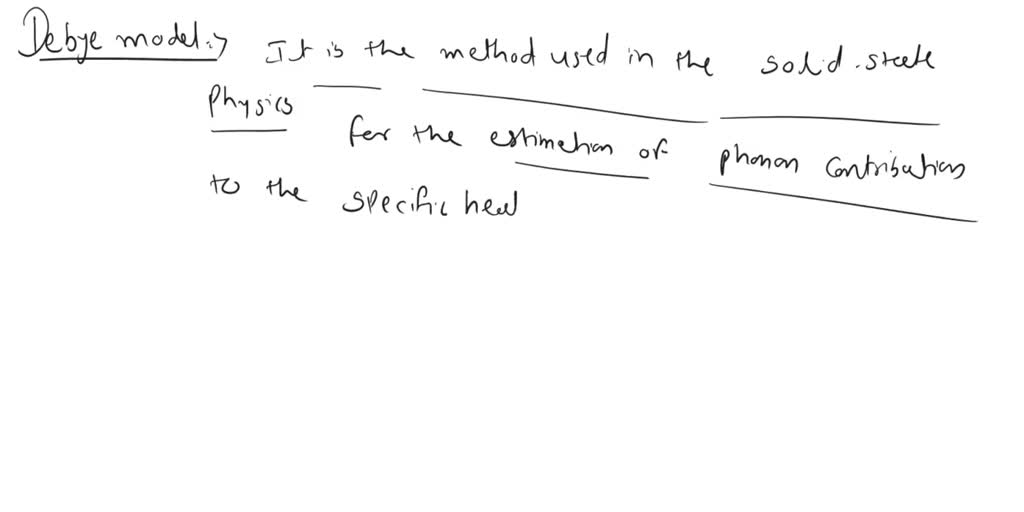 Debye model:> It is the method used in the solid-state
Physics for the estimation of phonon contributions
to the specific heat